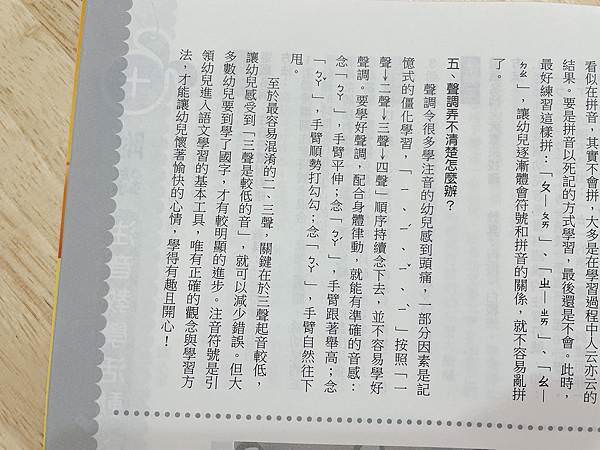 看似在拼音，其實不會拼，大多是在學習過程中人云亦云的
結果。要是拼音以死記的方式學習，最後還是不會。此時，
最好練習這樣拼：「ㄆ—ㄆㄞ」、「ㄓ—ㄓㄞ」、「ㄌ—
ㄌㄠ」，讓幼兒逐漸體會符號和拼音的關係，就不容易亂拼
了。
五、聲調弄不清楚怎麼辦？
聲調令很多學注音的幼兒感到頭痛，一部分因素是記
憶式的僵化學習，「ㄧ、ㄧˊ、ㄧˇ、ㄧˋ」按照「一
聲→二聲→三聲→四聲」順序持續念下去，並不容易學好
聲調。要學好聲調，配合身體律動，就能有準確的音感：
念「ㄅㄚ」，手臂平伸；念「ㄅㄚˊ」，手臂跟著舉高；念
「ㄅㄚˇ」，手臂順勢打勾勾；念「ㄅㄚˋ」，手臂自然往下
甩。
至於最容易混淆的二、三聲，關鍵在於三聲起音較低，
讓幼兒感受到「三聲是較低的音」，就可以減少錯誤。但大
多數幼兒要到學了國字，才有較明顯的進步。注音符號是引
領幼兒進入語文學習的基本工具，唯有正確的觀念與學習方
法，才能讓幼兒懷著愉快的心情，學得有趣且開心！